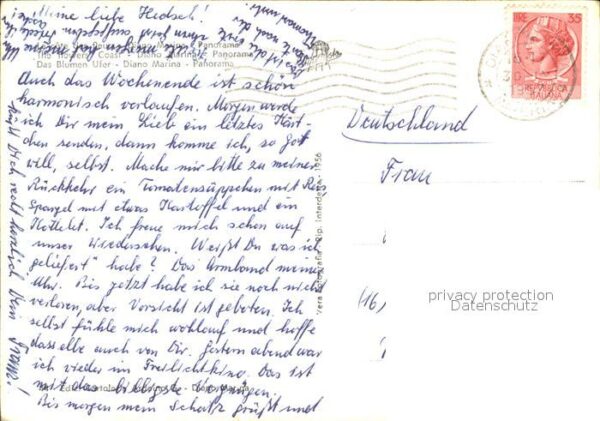 Meine liebe Hedsch!
The Flowers Coast - Diano Marina - Panorama
Das Blumen Ufer - Diano Marina - Panorama
Auch das Wochenende ist schön
harmonisch verlaufen. Morgen werde
ich Dir mein Lieb ein letztes Kärt-
chen senden, dann komme ich, so Gott
will, selbst. Mache mir bitte zu meiner
Rückkehr ein Tomatensüppchen mit Reis
Spargel mit etwas Kartoffel und ein
Kottelet. Ich freue mich schon auf
unser Wiedersehen. Weißt Du was ich
"geliefert" habe? Das Armband meiner
Uhr. Bis jetzt habe ich sie noch nicht
verloren, aber Vorsicht ist geboten. Ich
selbst fühle mich wohlauf und hoffe
dasselbe auch von Dir. Gestern abend war
ich wieder im Freilichtkino. Das ist
mit das billigste Vergnügen.
Bis morgen mein Schatz grüßt und
küßt Dich recht herzlich Dein
Franz!
Vera Fotografia - Rip. Interdetta - 1956
LIRE 35
REPVBBLICA
ITALIANA
Deutschland
Frau
(16)
privacy protection
Datenschutz